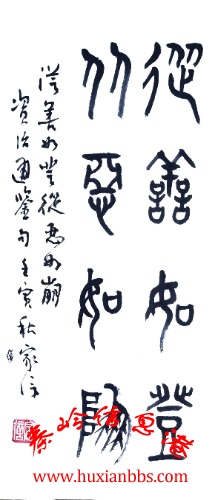 從善如登
从惡如崩
從善如登從惡如崩
資治通鑒句壬寅秋家信
www.huxianbbs.com